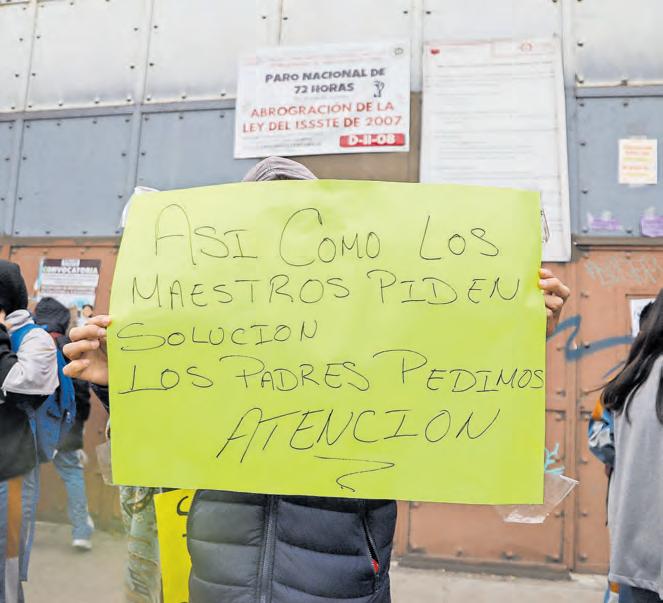 PARO NACIONAL DE
72 HORAS
ABROGRACIÓN DE LA
LEY DEL ISSSTE DE 2007
D-II-08
CONVOCATORIA
ASI COMO LOS
MAESTROS PIDEN
SOLUCION
LOS PADRES PEDIMOS
ATENCION